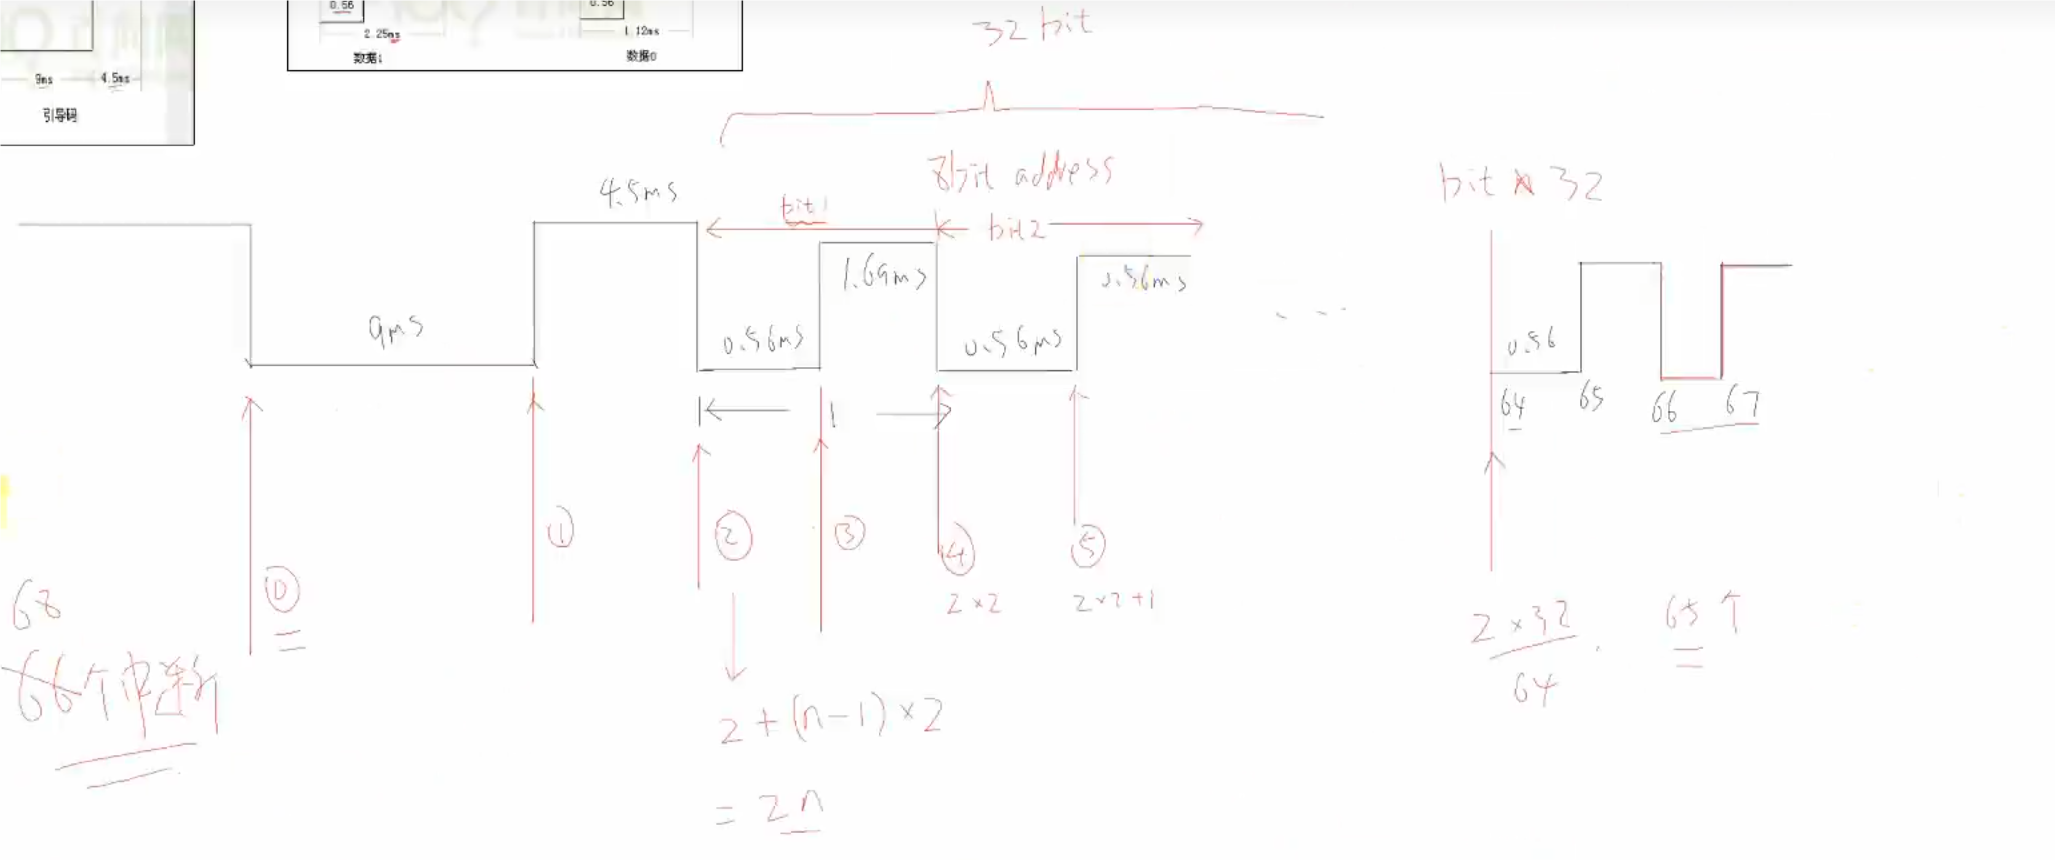 0.56
0.56
2.25ms
1.12ms
数据1
数据0
9ms
4.5ms
引导码
32 bit
8bit address
bit 32
4.5ms
bit1
bit2
1.69ms
0.56ms
9ms
0.56ms
0.56ms
0.56
64
65
66
67
1
①
②
③
④
⑤
⓪
2×2
2×2+1
68
66个中断
2×32
64
65个
2+(n-1)×2
=2n